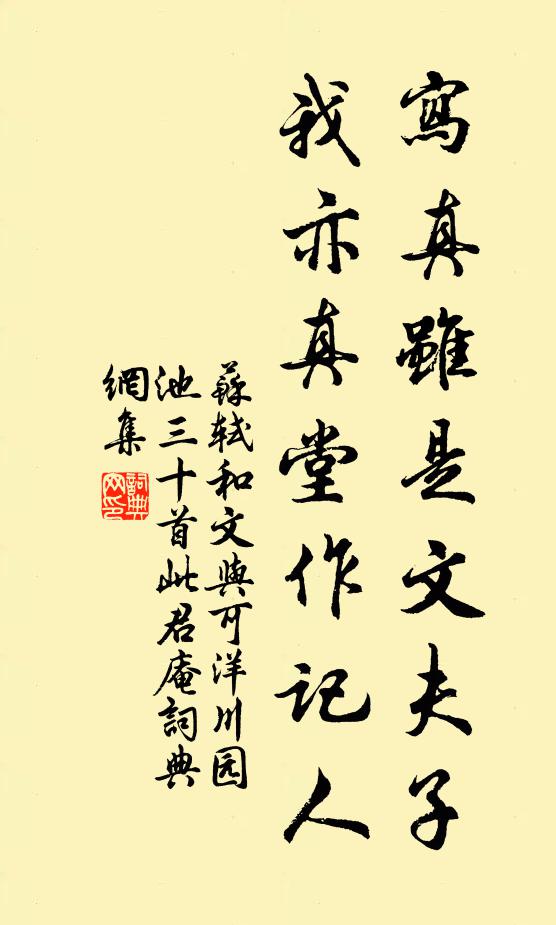 寫真雖是文夫子
我亦真堂作記人
蘇軾和文與可洋川园
池三十首此君庵詞典
網集
詞典
网印